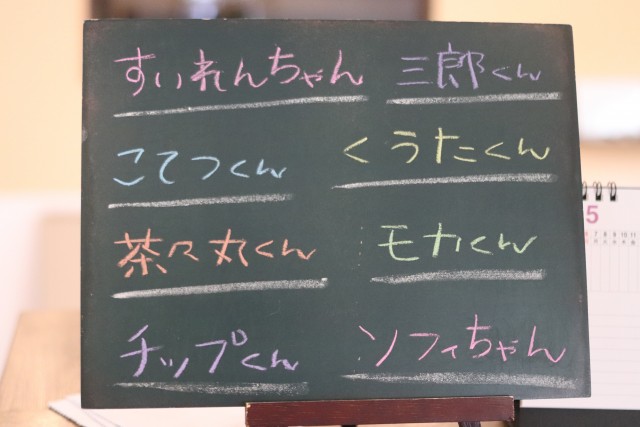 すいれんちゃん 三郎くん
こてつくん くうたくん
茶々丸くん モカくん
チップくん ソフィちゃん
5